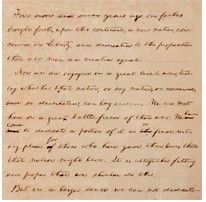 Four score and seven years ago our fathers
brought forth, upon this continent, a new nation, con-
ceived in Liberty, and dedicated to the proposition
that all men are created equal.
Now we are engaged in a great civil war, testing
whether that nation, or any nation, so conceived,
and so dedicated, can long endure. We are met
here on a great battle-field of that war. We have
come to dedicate a portion of it as
place for those who here gave their lives that
that nation might live. It is altogether fitting
and proper that we should do this.
But in a larger sense we can not dedicate